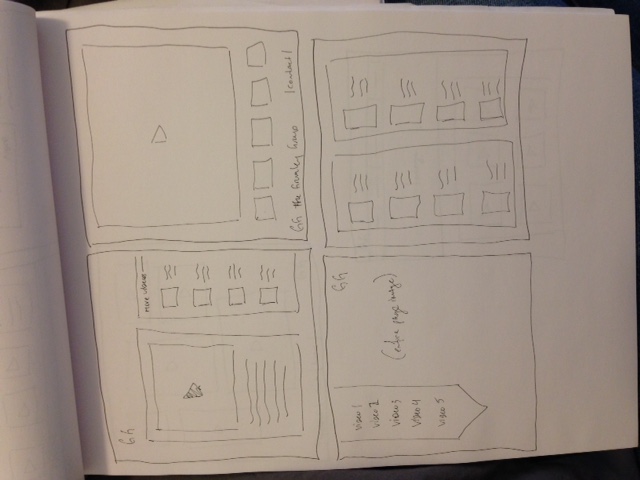 GG
more videos
GG the Group
|contact|
GG
video 1
video 2
video 3
video 4
video 5
(entire page image)